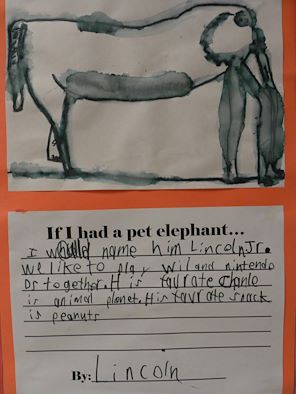 If I had a pet elephant...
I would name him Lincoln Jr.
We like to play wii and nintendo
Ds together. His favrate chanle
is animal planet. His favrate snack
is peanuts
By: Lincoln